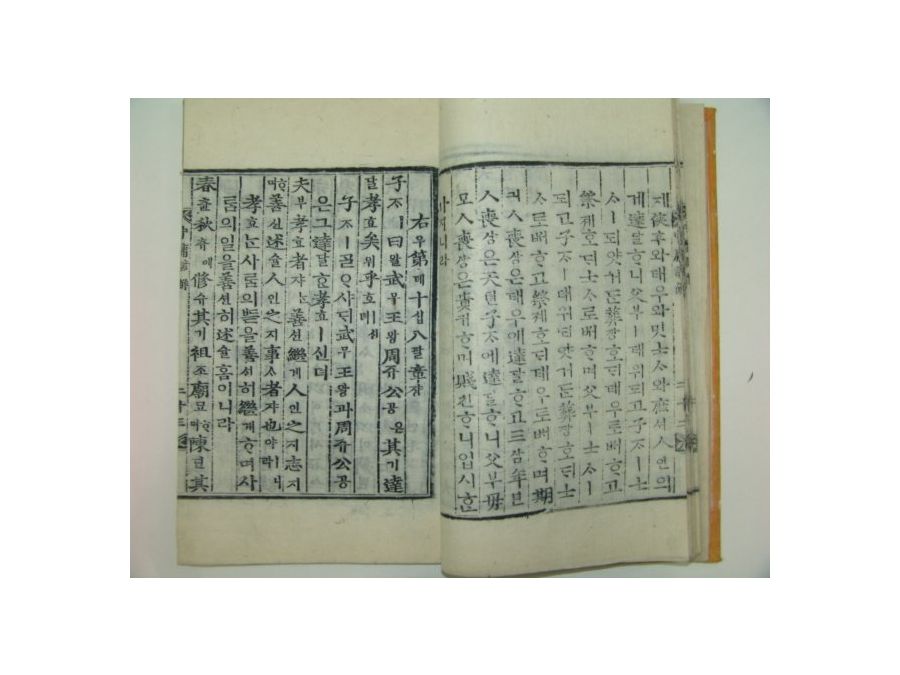 졔侯후와태우와밋士ᄉᆞ와庶셔人인의
게達달ᄒᆞ니父부ㅣ태위되고子ᄌᆞㅣ士
ᄉᆞㅣ되얏거든葬장호ᄃᆡ태우로ᄡᅥᄒᆞ고
祭졔호ᄃᆡ士ᄉᆞ로ᄡᅥᄒᆞ며父부ㅣ士ᄉᆞㅣ
되고子ᄌᆞㅣ태위되얏거든葬장호ᄃᆡ士
ᄉᆞ로ᄡᅥᄒᆞ고祭졔호ᄃᆡ태우로ᄡᅥᄒᆞ며期
긔ㅅ喪상은태우에達달ᄒᆞ고三삼年년
ㅅ喪상은天텬子ᄌᆞ에達달ᄒᆞ니父부母
모ㅅ喪상은貴귀ᄒᆞ며賤쳔ᄒᆞ니업시ᄒᆞᆫ
가지니라
右우第뎨十십八팔章쟝
子ᄌᆞㅣ曰왈武무王왕周쥬公공은其기達
달孝효矣의乎호뎌신
子ᄌᆞㅣᄀᆞᆯᄋᆞ샤ᄃᆡ武무王왕과周쥬公공
은그達달ᄒᆞᆫ孝효ㅣ신뎌
夫부孝효者쟈ᄂᆞᆫ善션繼계人인之지志지
ᄒᆞ며善션述슐人인之지事ᄉᆞ者쟈也야ㅣ니라
孝효ᄂᆞᆫ사ᄅᆞᆷ의ᄠᅳᆮ을善션히繼계ᄒᆞ며사
ᄅᆞᆷ의일을善션히述슐홈이니라
春츈秋츄에修슈其기祖조廟묘ᄒᆞ며陳딘其기
中庸諺解 二十三